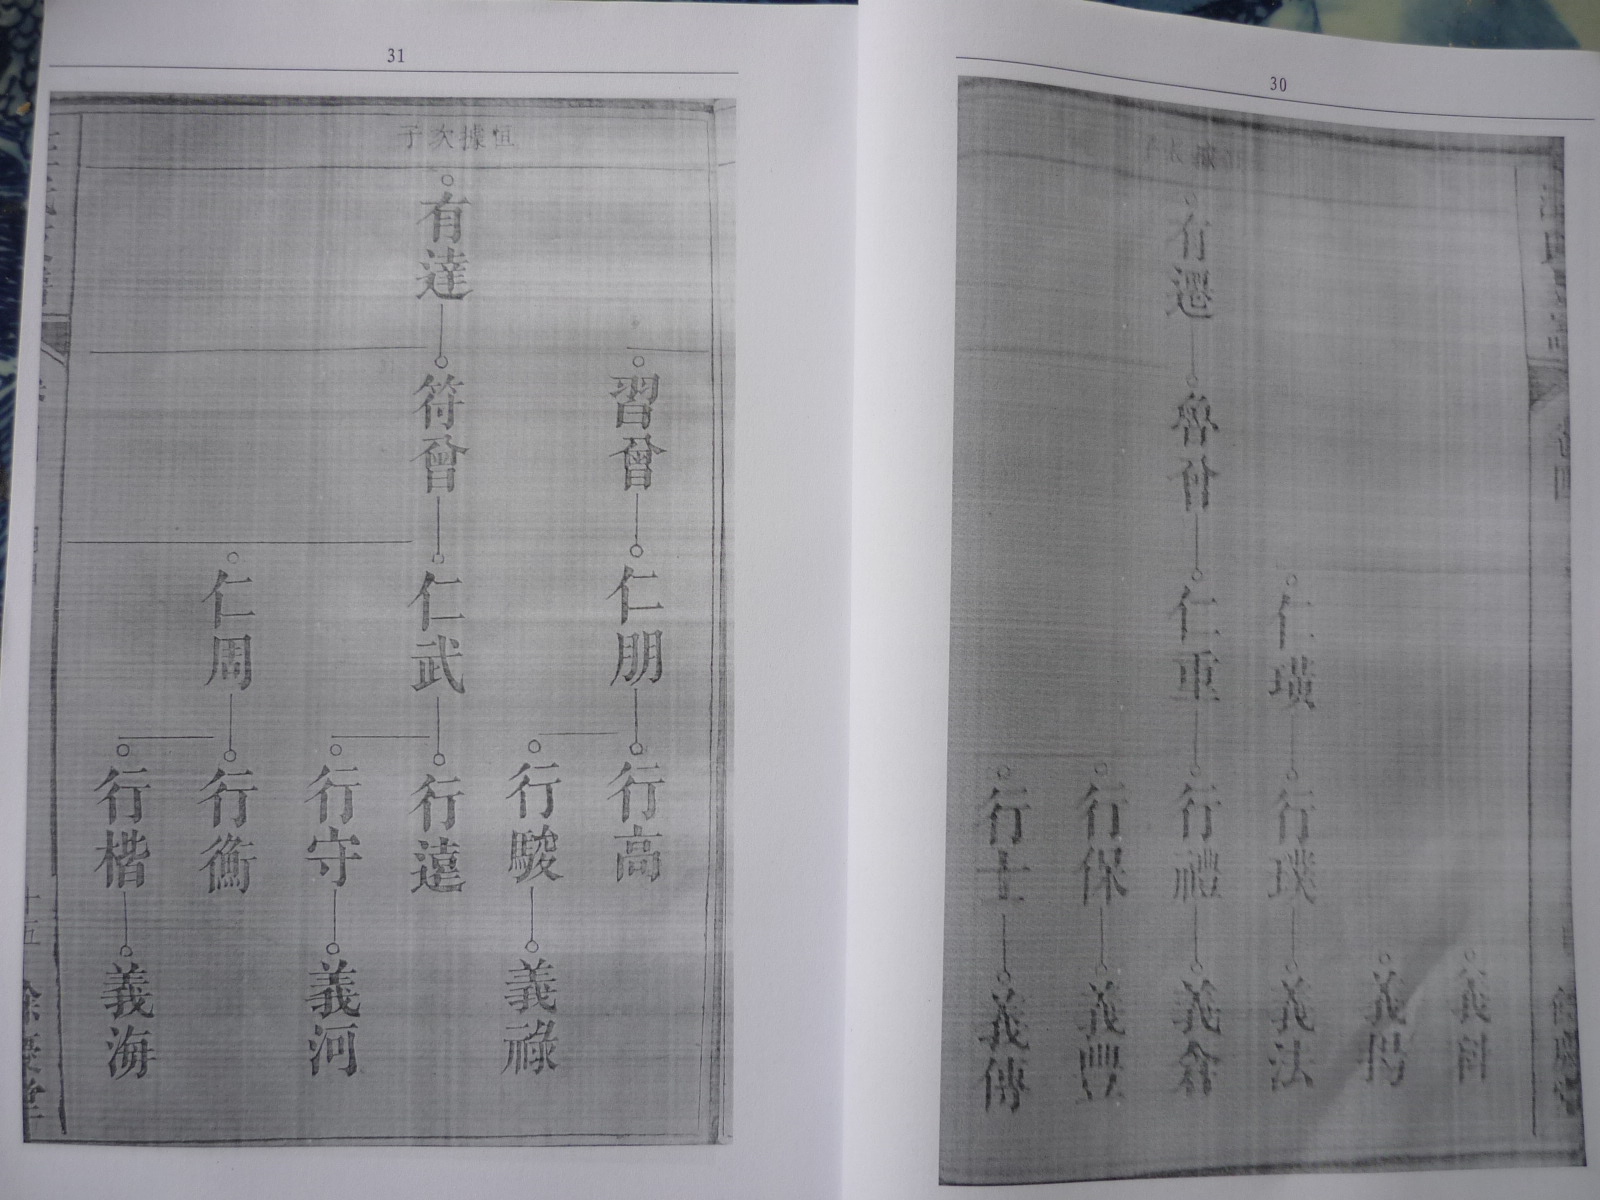 31
恒據次子
有達
習曾
符曾
仁朋
仁武
仁周
行高
行駿
行遠
行守
行衡
行楷
義祿
義河
義海
十五
餘慶堂
30
有還
魯曾
仁璜
仁重
行璞
行禮
行保
行士
義法
義倉
義豐
義傳